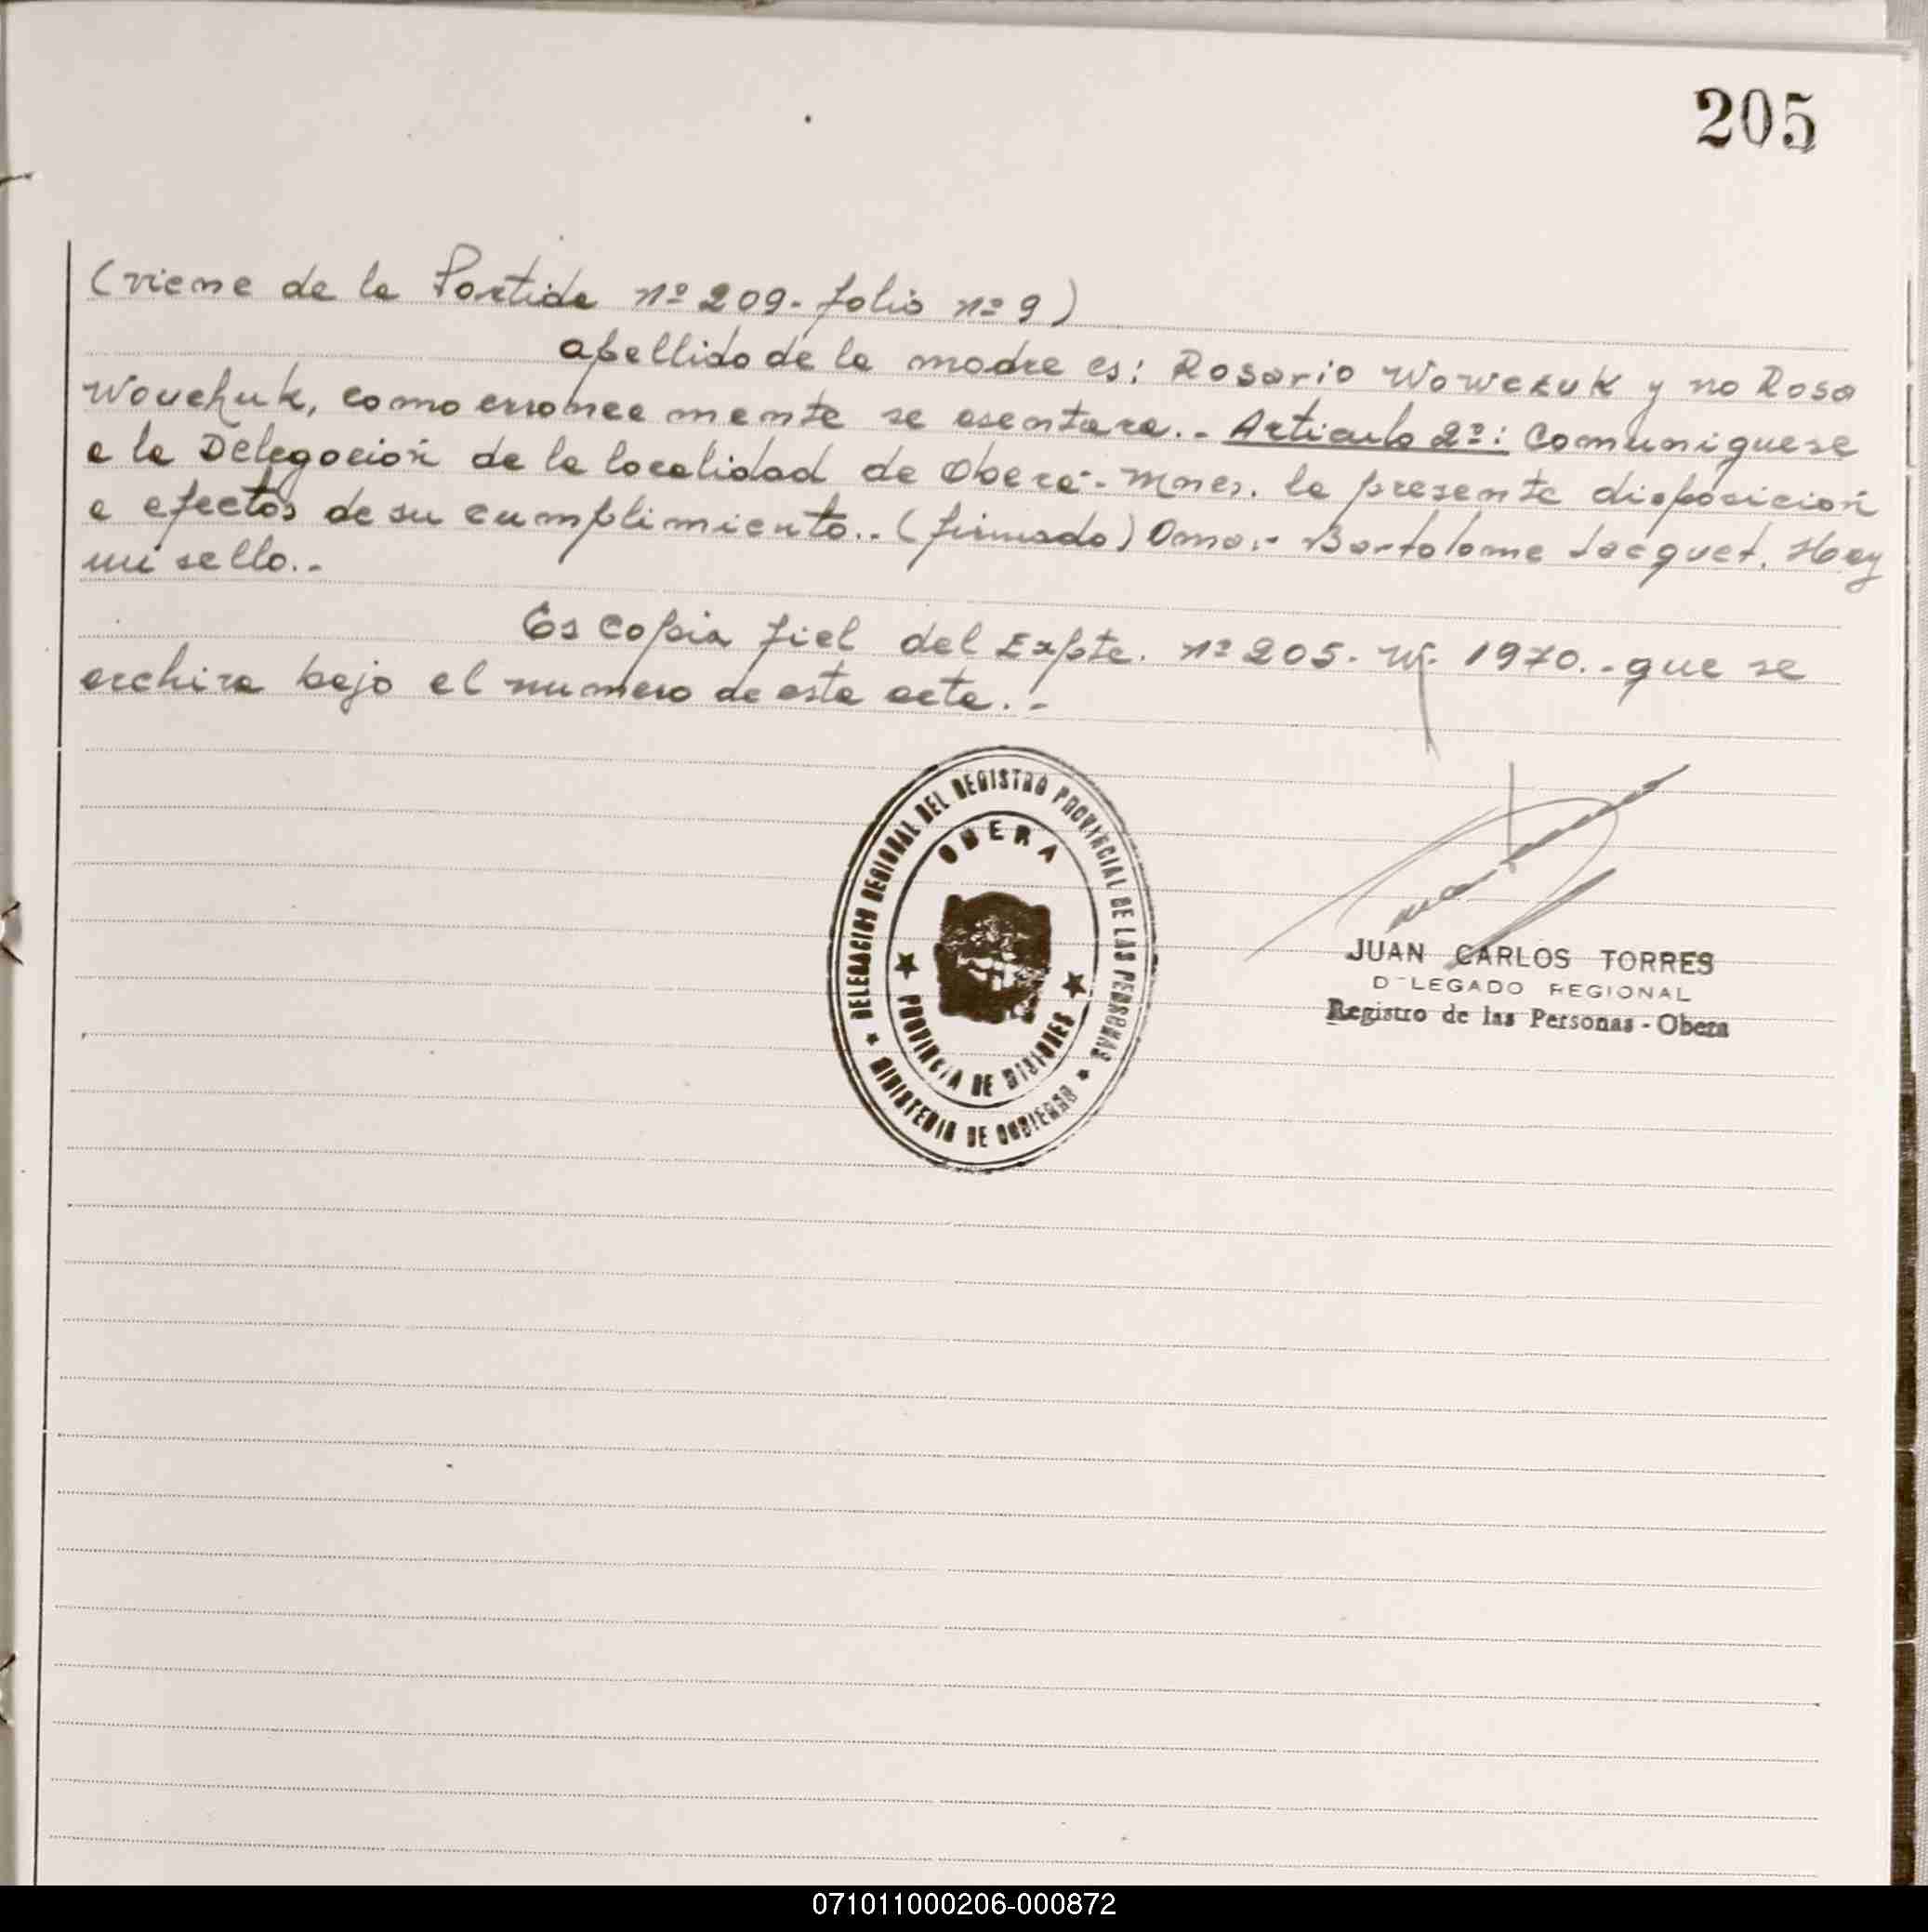 205
(viene de la Partida nº 209. folio nº 9)
apellido de la madre es: Rosario Wowczuk y no Rosa
Wouchuk, como erronea mente se asentara.. Articulo 2º: Comuniquese
a la Delegación de la localidad de Oberá. Mnes. la presente disposición
a efectos de su cumplimiento.. (firmado) Omar Bartolome Jacquet. Hay
un sello..
Es copia fiel del Expte. nº 205. W. 1970.. que se
archiva bajo el numero de esta acta..
DELEGACION REGIONAL DEL REGISTRO PROVINCIAL DE LAS PERSONAS
OBERA
PROVINCIA DE MISIONES
MINISTERIO DE GOBIERNO
JUAN CARLOS TORRES
DELEGADO REGIONAL
Registro de las Personas - Obera
071011000206-000872